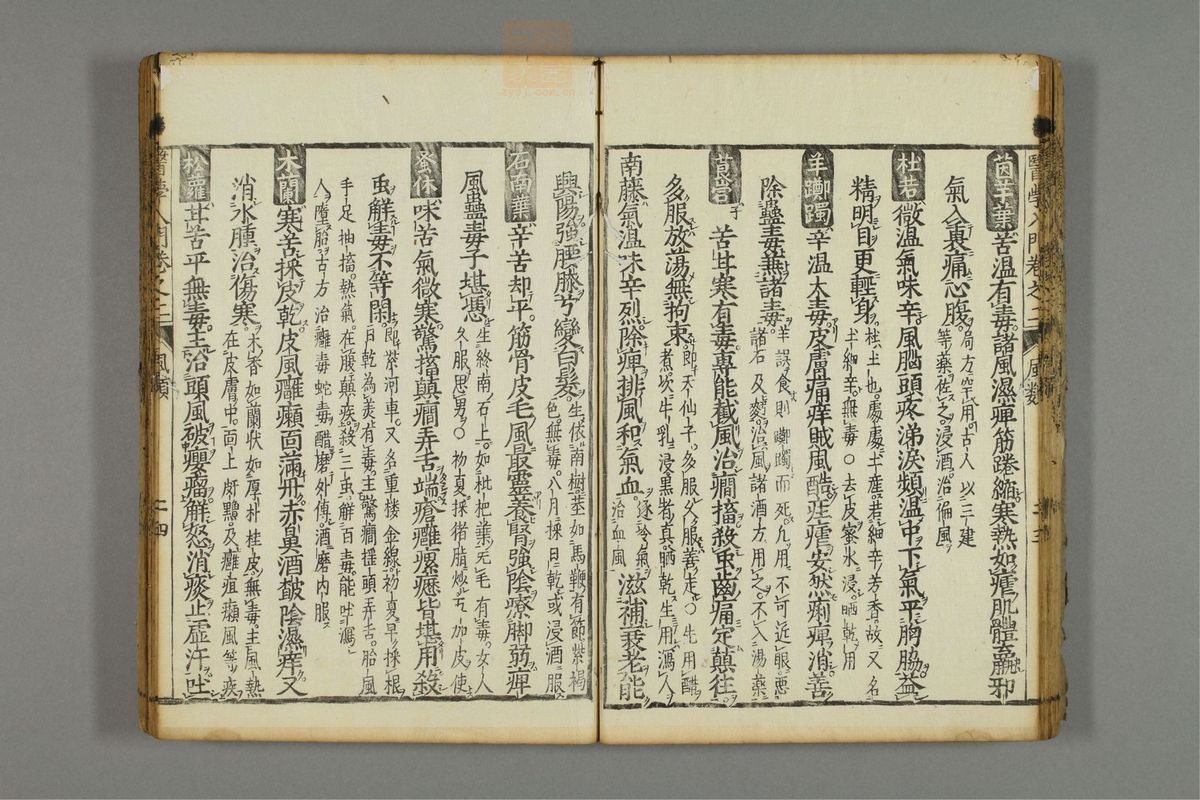 茵芋葉 苦溫有毒諸風濕痺筋踡縮寒熱如瘧肌體羸邪
氣入裏痛心腹 局方罕用古人以三建
等藥佐之浸酒治偏風
杜若 微溫氣味辛風腦頭疼涕淚頻溫中下氣平胸脇益
精明目更輕身 杜土也處處土產若細辛芳香故又名
土細辛無毒○去皮蜜水浸晒乾用
羊躑躅 辛溫大毒皮膚痛痒賊風酷疰瘧安然痢痺消善
除蠱毒兼諸毒 羊誤食則躑躅而死凡用不可近眼惡
諸石及麪治風諸酒方用之不入湯藥
莨菪子 苦甘寒有毒專能截風治癇搐殺虫齒痛定顛狂
多服放蕩無拘束 即天仙子多服久服善走○先用醋
煮次牛乳浸黑者真晒乾生用瀉人
南藤氣溫味辛烈除痺排風和氣血 逐冷氣
治血風 滋補衰老能
興陽強腰膝兮變白髮 生依南樹莖如馬鞭有節紫褐
色無毒八月採日乾或浸酒服
石南葉 辛苦却平筋骨皮毛風最靈養腎強陰療脚弱痺
風蠱毒子堪憑 生終南石上如枇杷葉無毛有毒女人
久服思男○初夏採猪脂炒丸加皮使
蚤休 味苦氣微寒驚搐巔癇弄舌端瘡癰瘰癧皆堪用殺
虫解毒不等閑 即紫河車又名重樓金線初夏早採根
日乾為羙有毒主驚癇搖頭弄舌胎風
手足抽搐熱氣在腹巔疾殺三虫解百毒能吐瀉
人墮胎古方治癰毒蛇毒醋磨外傅酒磨內服
木蘭 寒苦採皮乾皮風癰癩面滿丹赤鼻酒皶陰濕痒又
消水腫治傷寒 木香如蘭狀如厚朴桂皮無毒主風熱
在皮膚中面上䵟黯及癰疽癩風等疾
松蘿 甘苦平無毒主治頭風破癭瘤解怒消痰止虛汗吐
醫學入門卷之二 風類 二十四